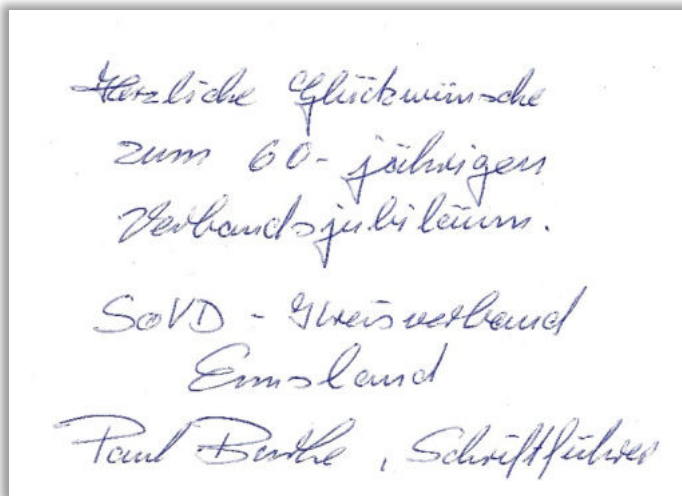 Herzliche Glückwünsche
zum 60-jährigen
Verbandsjubiläum.
SoVD - Kreisverband
Emsland
Paul , Schriftführer